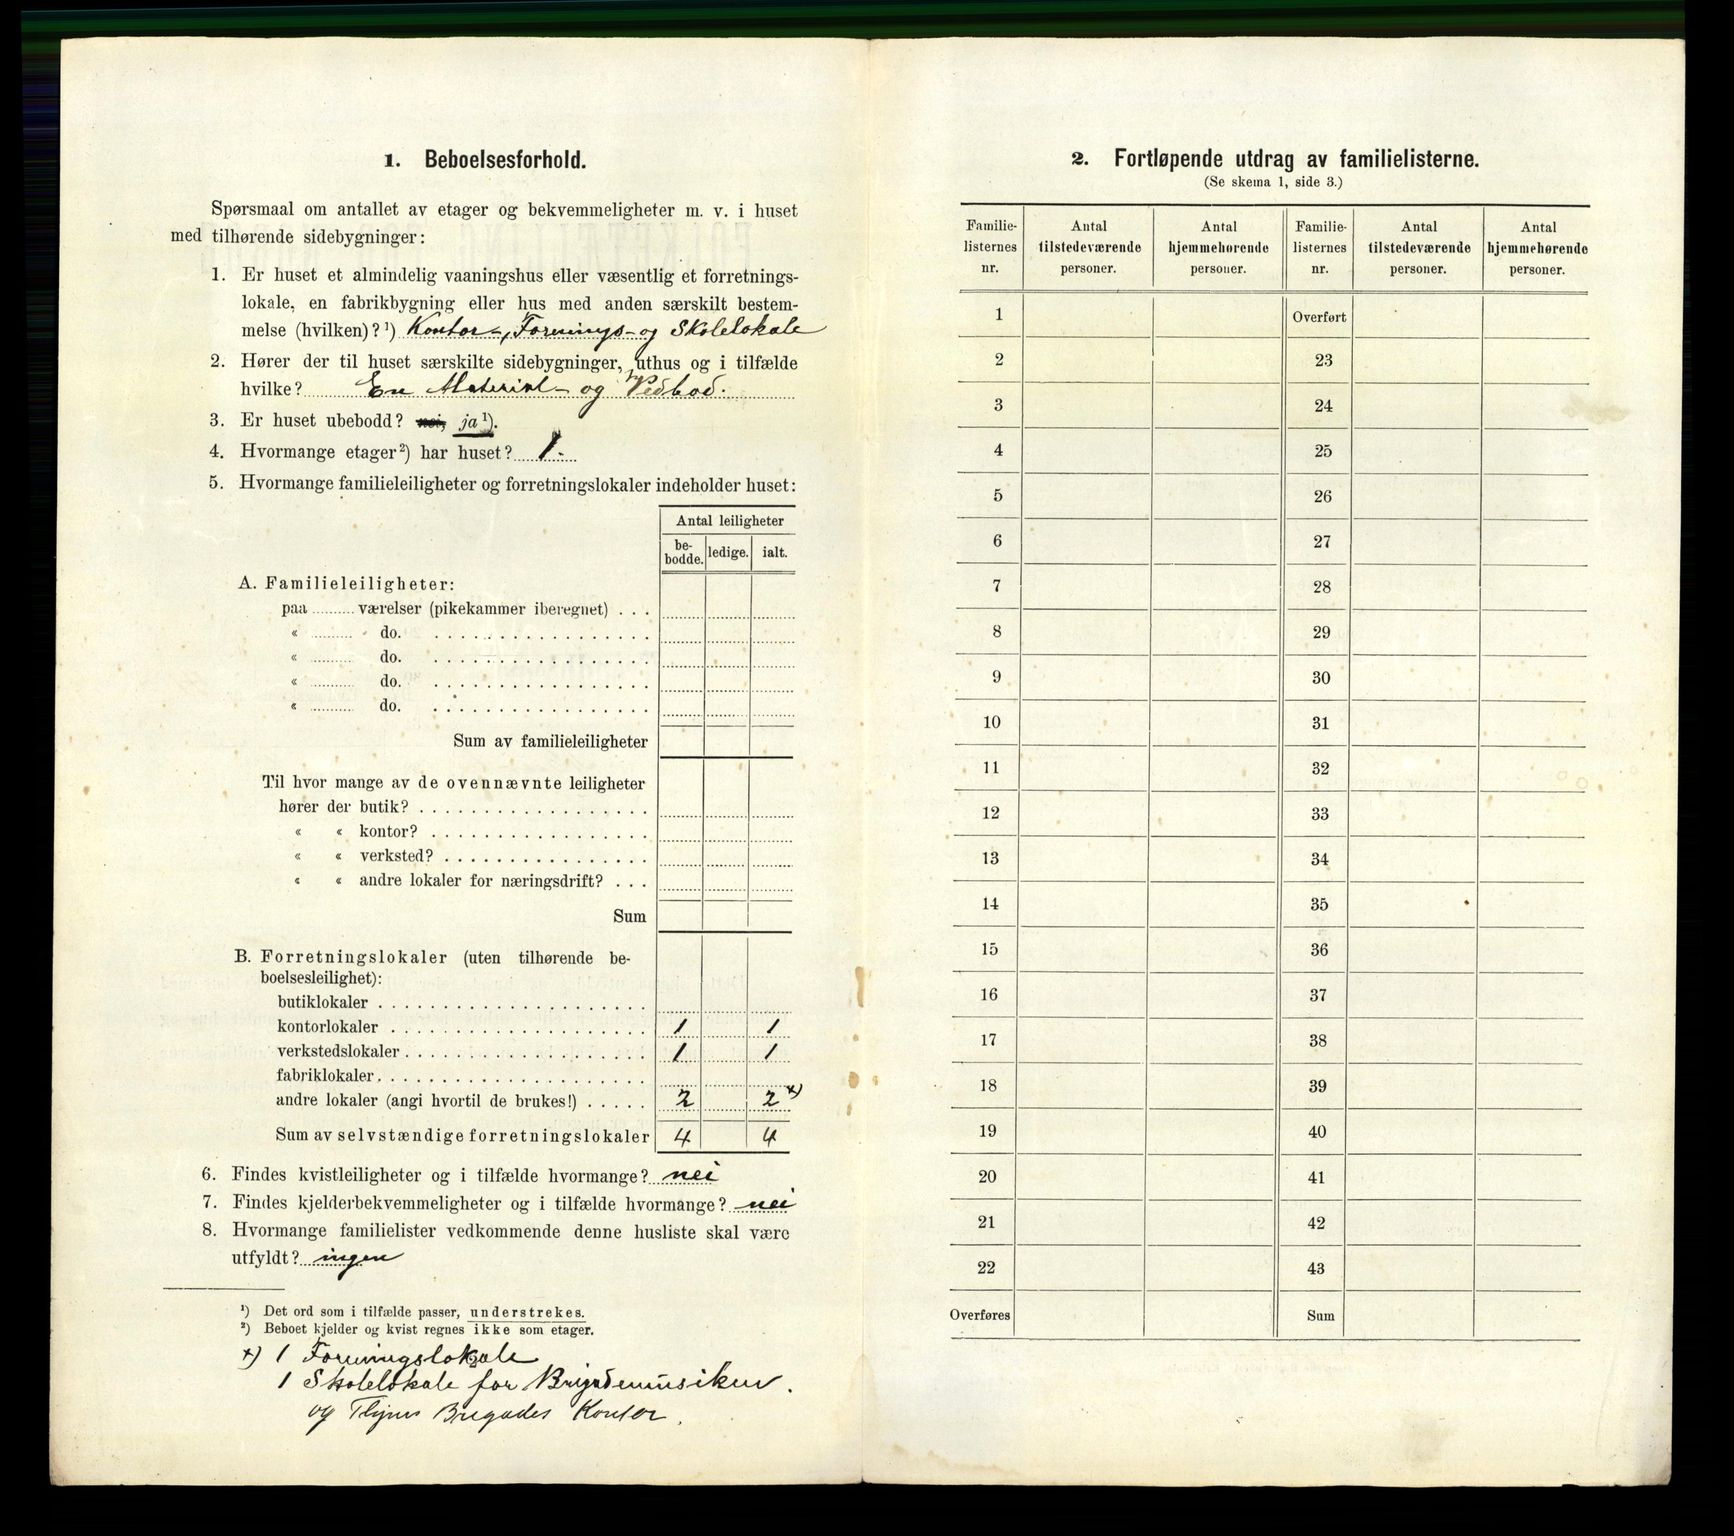 1. Beboelsesforhold.
Spørsmaal om antallet av etager og bekvemmeligheter m. v. i huset
med tilhørende sidebygninger:
1. Er huset et almindelig vaaningshus eller væsentlig et forretnings-
lokale, en fabrikbygning eller hus med anden særskilt bestem-
melse (hvilken)?¹) Kontor-, Forenings- og Skolelokale
2. Hører der til huset særskilte sidebygninger, uthus og i tilfælde
hvilke? En Material- og Vedbod.
3. Er huset ubebodd? nei, ja¹).
4. Hvormange etager²) har huset? 1.
5. Hvormange familieleiligheter og forretningslokaler indeholder huset:
Antal leiligheter
be-
bodde. ledige. ialt.
A. Familieleiligheter:
paa ......... værelser (pikekammer iberegnet) . . .
« ......... do. . . . . . . . . . . . . . . . .
« ......... do. . . . . . . . . . . . . . . . .
« ......... do. . . . . . . . . . . . . . . . .
« ......... do. . . . . . . . . . . . . . . . .
Sum av familieleiligheter
Til hvor mange av de ovennævnte leiligheter
hører der butik? . . . . . . . . . . . . . . . . .
« « kontor? . . . . . . . . . . . . . . . .
« « verksted? . . . . . . . . . . . . . . .
« « andre lokaler for næringsdrift? . . .
Sum
B. Forretningslokaler (uten tilhørende be-
boelsesleilighet):
butiklokaler . . . . . . . . . . . . . . . . . . . .
kontorlokaler . . . . . . . . . . . . . . . . . . . 1 1
verkstedslokaler . . . . . . . . . . . . . . . . . . 1 1
fabriklokaler . . . . . . . . . . . . . . . . . . . .
andre lokaler (angi hvortil de brukes!) . . . . . 2 2 x)
Sum av selvstændige forretningslokaler 4 4
6. Findes kvistleiligheter og i tilfælde hvormange? nei
7. Findes kjelderbekvemmeligheter og i tilfælde hvormange? nei
8. Hvormange familielister vedkommende denne husliste skal være
utfyldt? ingen
¹) Det ord som i tilfælde passer, understrekes.
²) Beboet kjelder og kvist regnes ikke som etager.
x) 1 Foreningslokale
1 Skolelokale for Brigademusiken.
og Brigades Kontor.
2. Fortløpende utdrag av familielisterne.
(Se skema 1, side 3.)
Familie-
listernes
nr.
Antal
tilstedeværende
personer.
Antal
hjemmehørende
personer.
Familie-
listernes
nr.
Antal
tilstedeværende
personer.
Antal
hjemmehørende
personer.
1 Overført
2 23
3 24
4 25
5 26
6 27
7 28
8 29
9 30
10 31
11 32
12 33
13 34
14 35
15 36
16 37
17 38
18 39
19 40
20 41
21 42
22 43
Overføres Sum